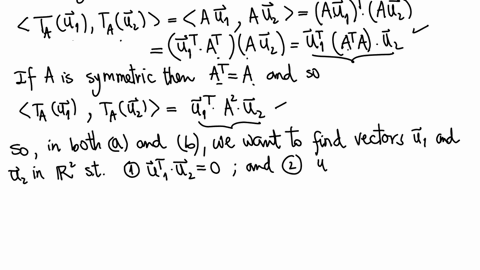 < T_A(u⃗₁), T_A(u⃗₂) > = < A u⃗₁, A u⃗₂ > = (A u⃗₁)ᵀ · (A u⃗₂)
= (u⃗₁ᵀ · Aᵀ)(A u⃗₂) = u⃗₁ᵀ (AᵀA) · u⃗₂ ✓
If A is symmetric then Aᵀ = A and so
< T_A(u⃗₁), T_A(u⃗₂) > = u⃗₁ᵀ · A² · u⃗₂ ✓
so, in both (a) and (b), we want to find vectors u⃗₁ and
u⃗₂ in ℝ² st. ① u⃗₁ᵀ · u⃗₂ = 0 ; and ② u